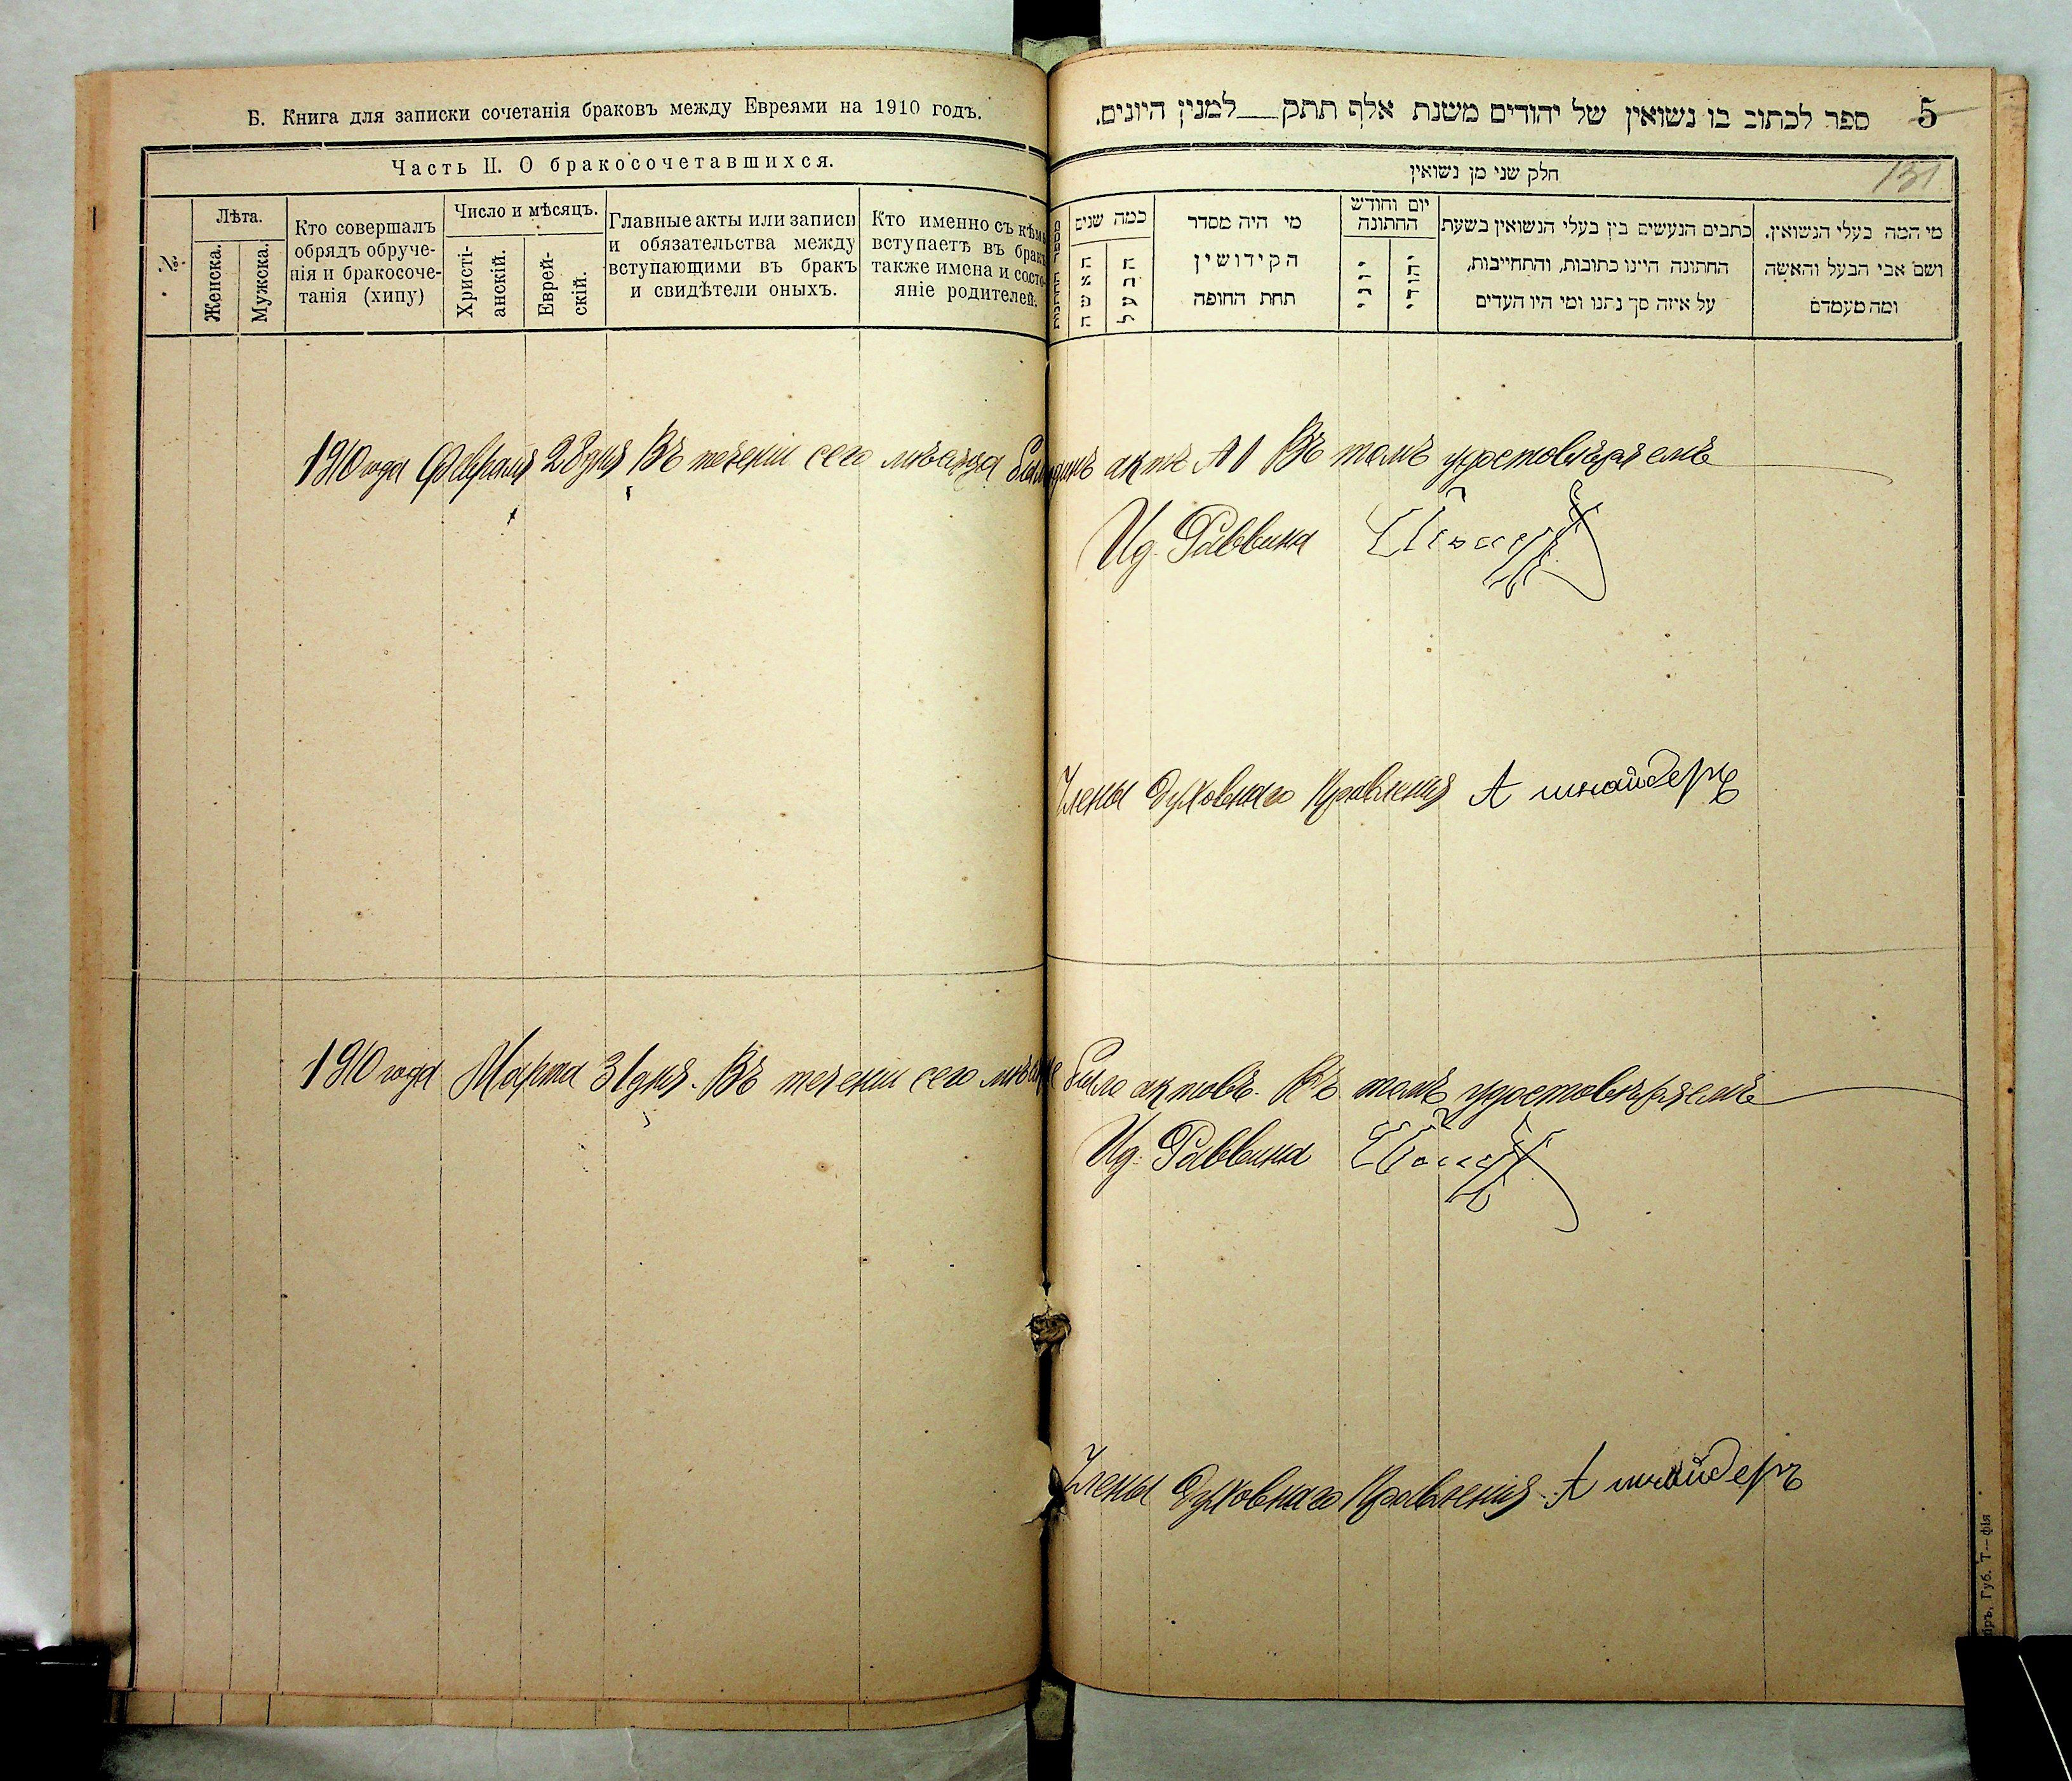 Б. Книга для записки сочетанія браковъ между Евреями на 1910 годъ.
Часть II. О бракосочетавшихся.
№.
Лѣта.
Женска.
Мужска.
Кто совершалъ
обрядъ обруче-
нія и бракосоче-
танія (хипу)
Число и мѣсяцъ.
Христі-
анскій.
Еврей-
скій.
Главные акты или записи
и обязательства между
вступающими въ бракъ
и свидѣтели оныхъ.
Кто именно съ кѣмъ
вступаетъ въ бракъ
также имена и состо-
яніе родителей.
ספר לכתוב בו נשואין של יהודים משנת אלף תתק למנין היונים.
5
131
חלק שני מן נשואין
מי המה בעלי הנשואין.
ושם אבי הבעל והאשה
ומה מעמדם
כתבים הנעשים בין בעלי הנשואין בשעת
החתונה היינו כתובות, והתחייבות,
על איזה סך נתנו ומי היו העדים
יום וחודש
החתונה
יהודי
יוני
מי היה מסדר
הקידושין
תחת החופה
כמה שנים
הבעל
האשה
מספר החתונות
1910 года Февраля 28 дня Въ теченіи сего мѣсяца актъ №1 Въ томъ удостовѣряемъ
Ид. Раввина
Члены Духовнаго Правленія А шнайдеръ
1910 года Марта 31 дня. Въ теченіи сего было актовъ. Въ томъ удостовѣряемъ
Ид. Раввина
Члены Духовнаго Правленія А шнайдеръ
Губ. Т—фія